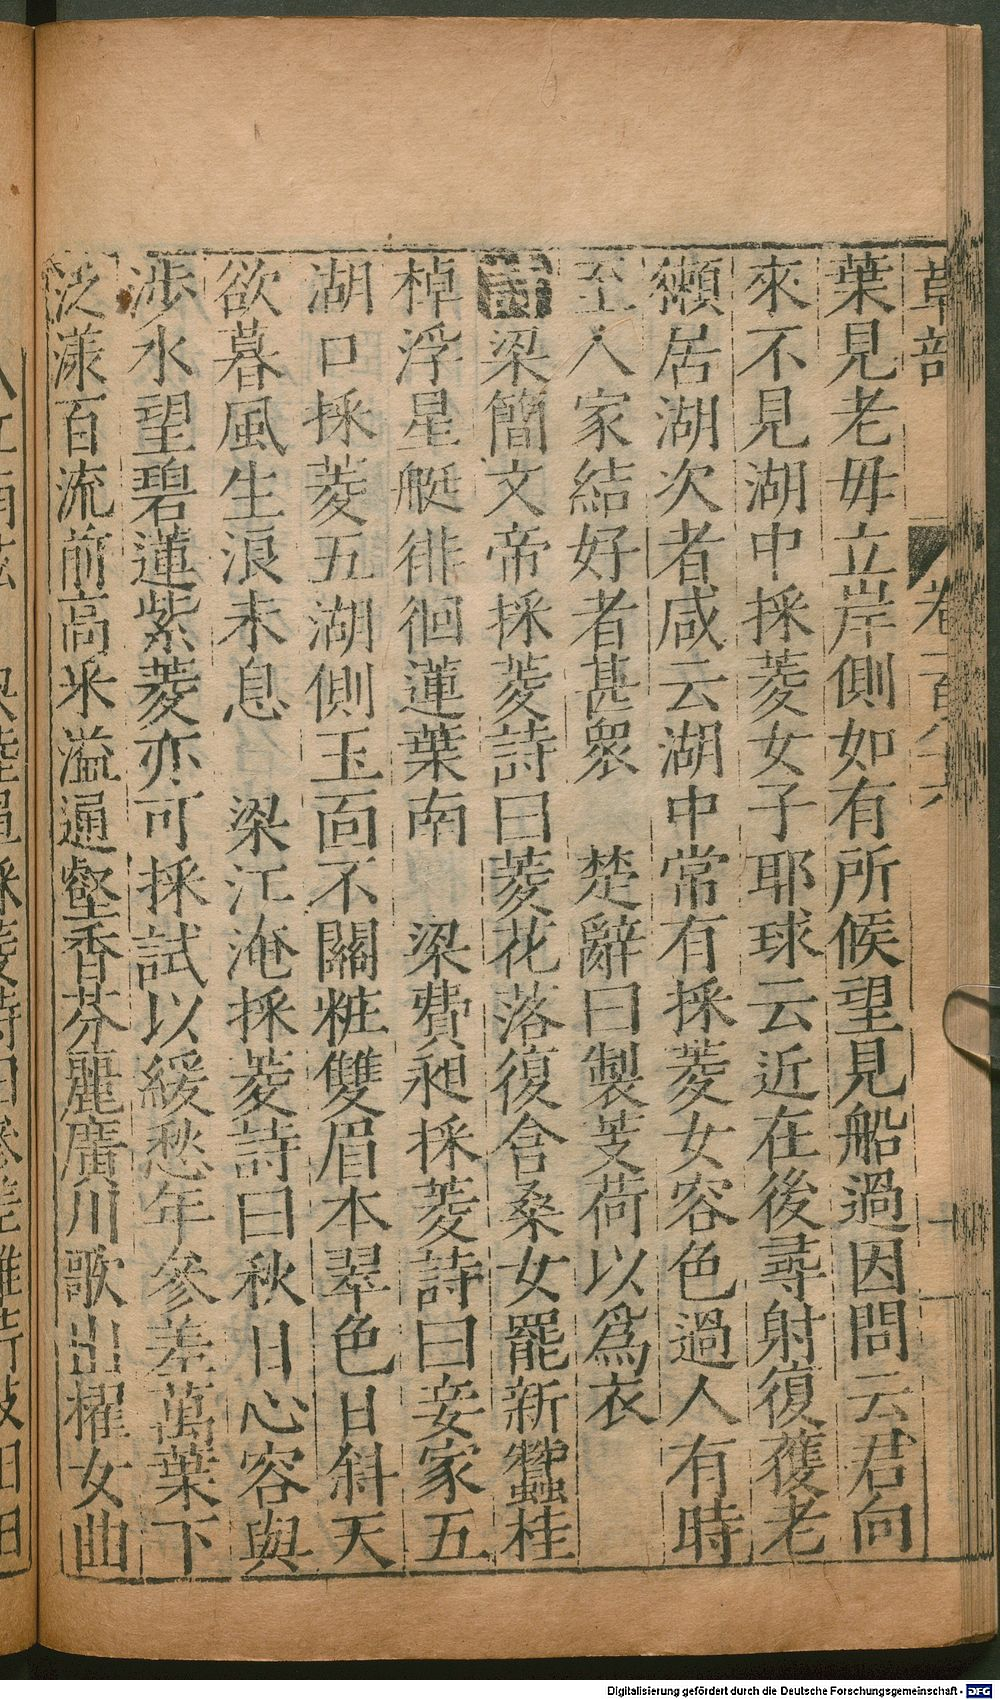 草部
卷一百八六
葉見老毋立岸側如有所候望見船過因問云君向
來不見湖中採菱女子耶球云近在後尋射復䧺老
獺居湖次者咸云湖中常有採菱女容色過人有時
至人家結好者甚衆　楚辭曰製芰荷以爲衣
詩梁簡文帝採菱詩曰菱花落復含桑女罷新蠶桂
棹浮星艇徘徊蓮葉南　梁費昶採菱詩曰妾家五
湖口採菱五湖側玉面不關粧雙眉本翠色日斜天
欲暮風生浪未息　梁江淹採菱詩曰秋日心容與
涉水望碧蓮紫菱亦可採試以緩愁年參差萬葉下
泛漾百流前高米溢通壑香芬麗廣川歌出櫂女曲
Digitalisierung gefördert durch die Deutsche Forschungsgemeinschaft - DFG